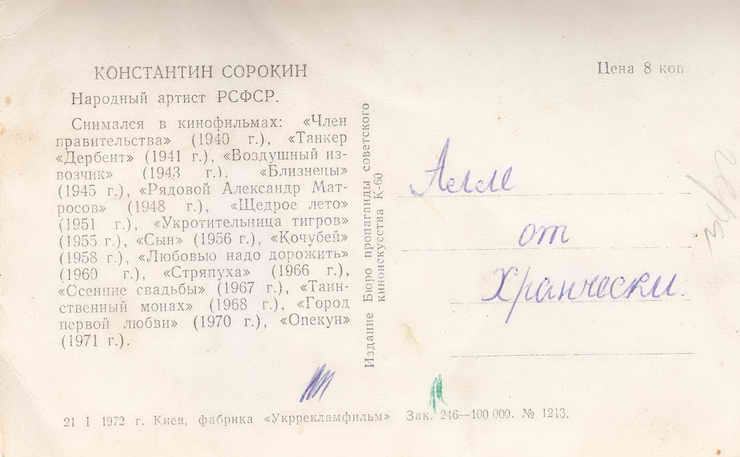 КОНСТАНТИН СОРОКИН
Народный артист РСФСР.
Снимался в кинофильмах: «Член
правительства» (1940 г.), «Танкер
«Дербент» (1941 г.), «Воздушный из-
возчик» (1943 г.), «Близнецы»
(1945 г.), «Рядовой Александр Мат-
росов» (1948 г.), «Щедрое лето»
(1951 г.), «Укротительница тигров»
(1955 г.), «Сын» (1956 г.), «Кочубей»
(1958 г.), «Любовью надо дорожить»
(1960 г.), «Стряпуха» (1966 г.),
«Осенние свадьбы» (1967 г.), «Таин-
ственный монах» (1968 г.), «Город
первой любви» (1970 г.), «Опекун»
(1971 г.).
Издание Бюро пропаганды советского
киноискусства К-60
Цена 8 коп
Алле
от
21 I 1972 г. Киев, фабрика «Укррекламфильм» Зак. 246—100 000. № 1213.